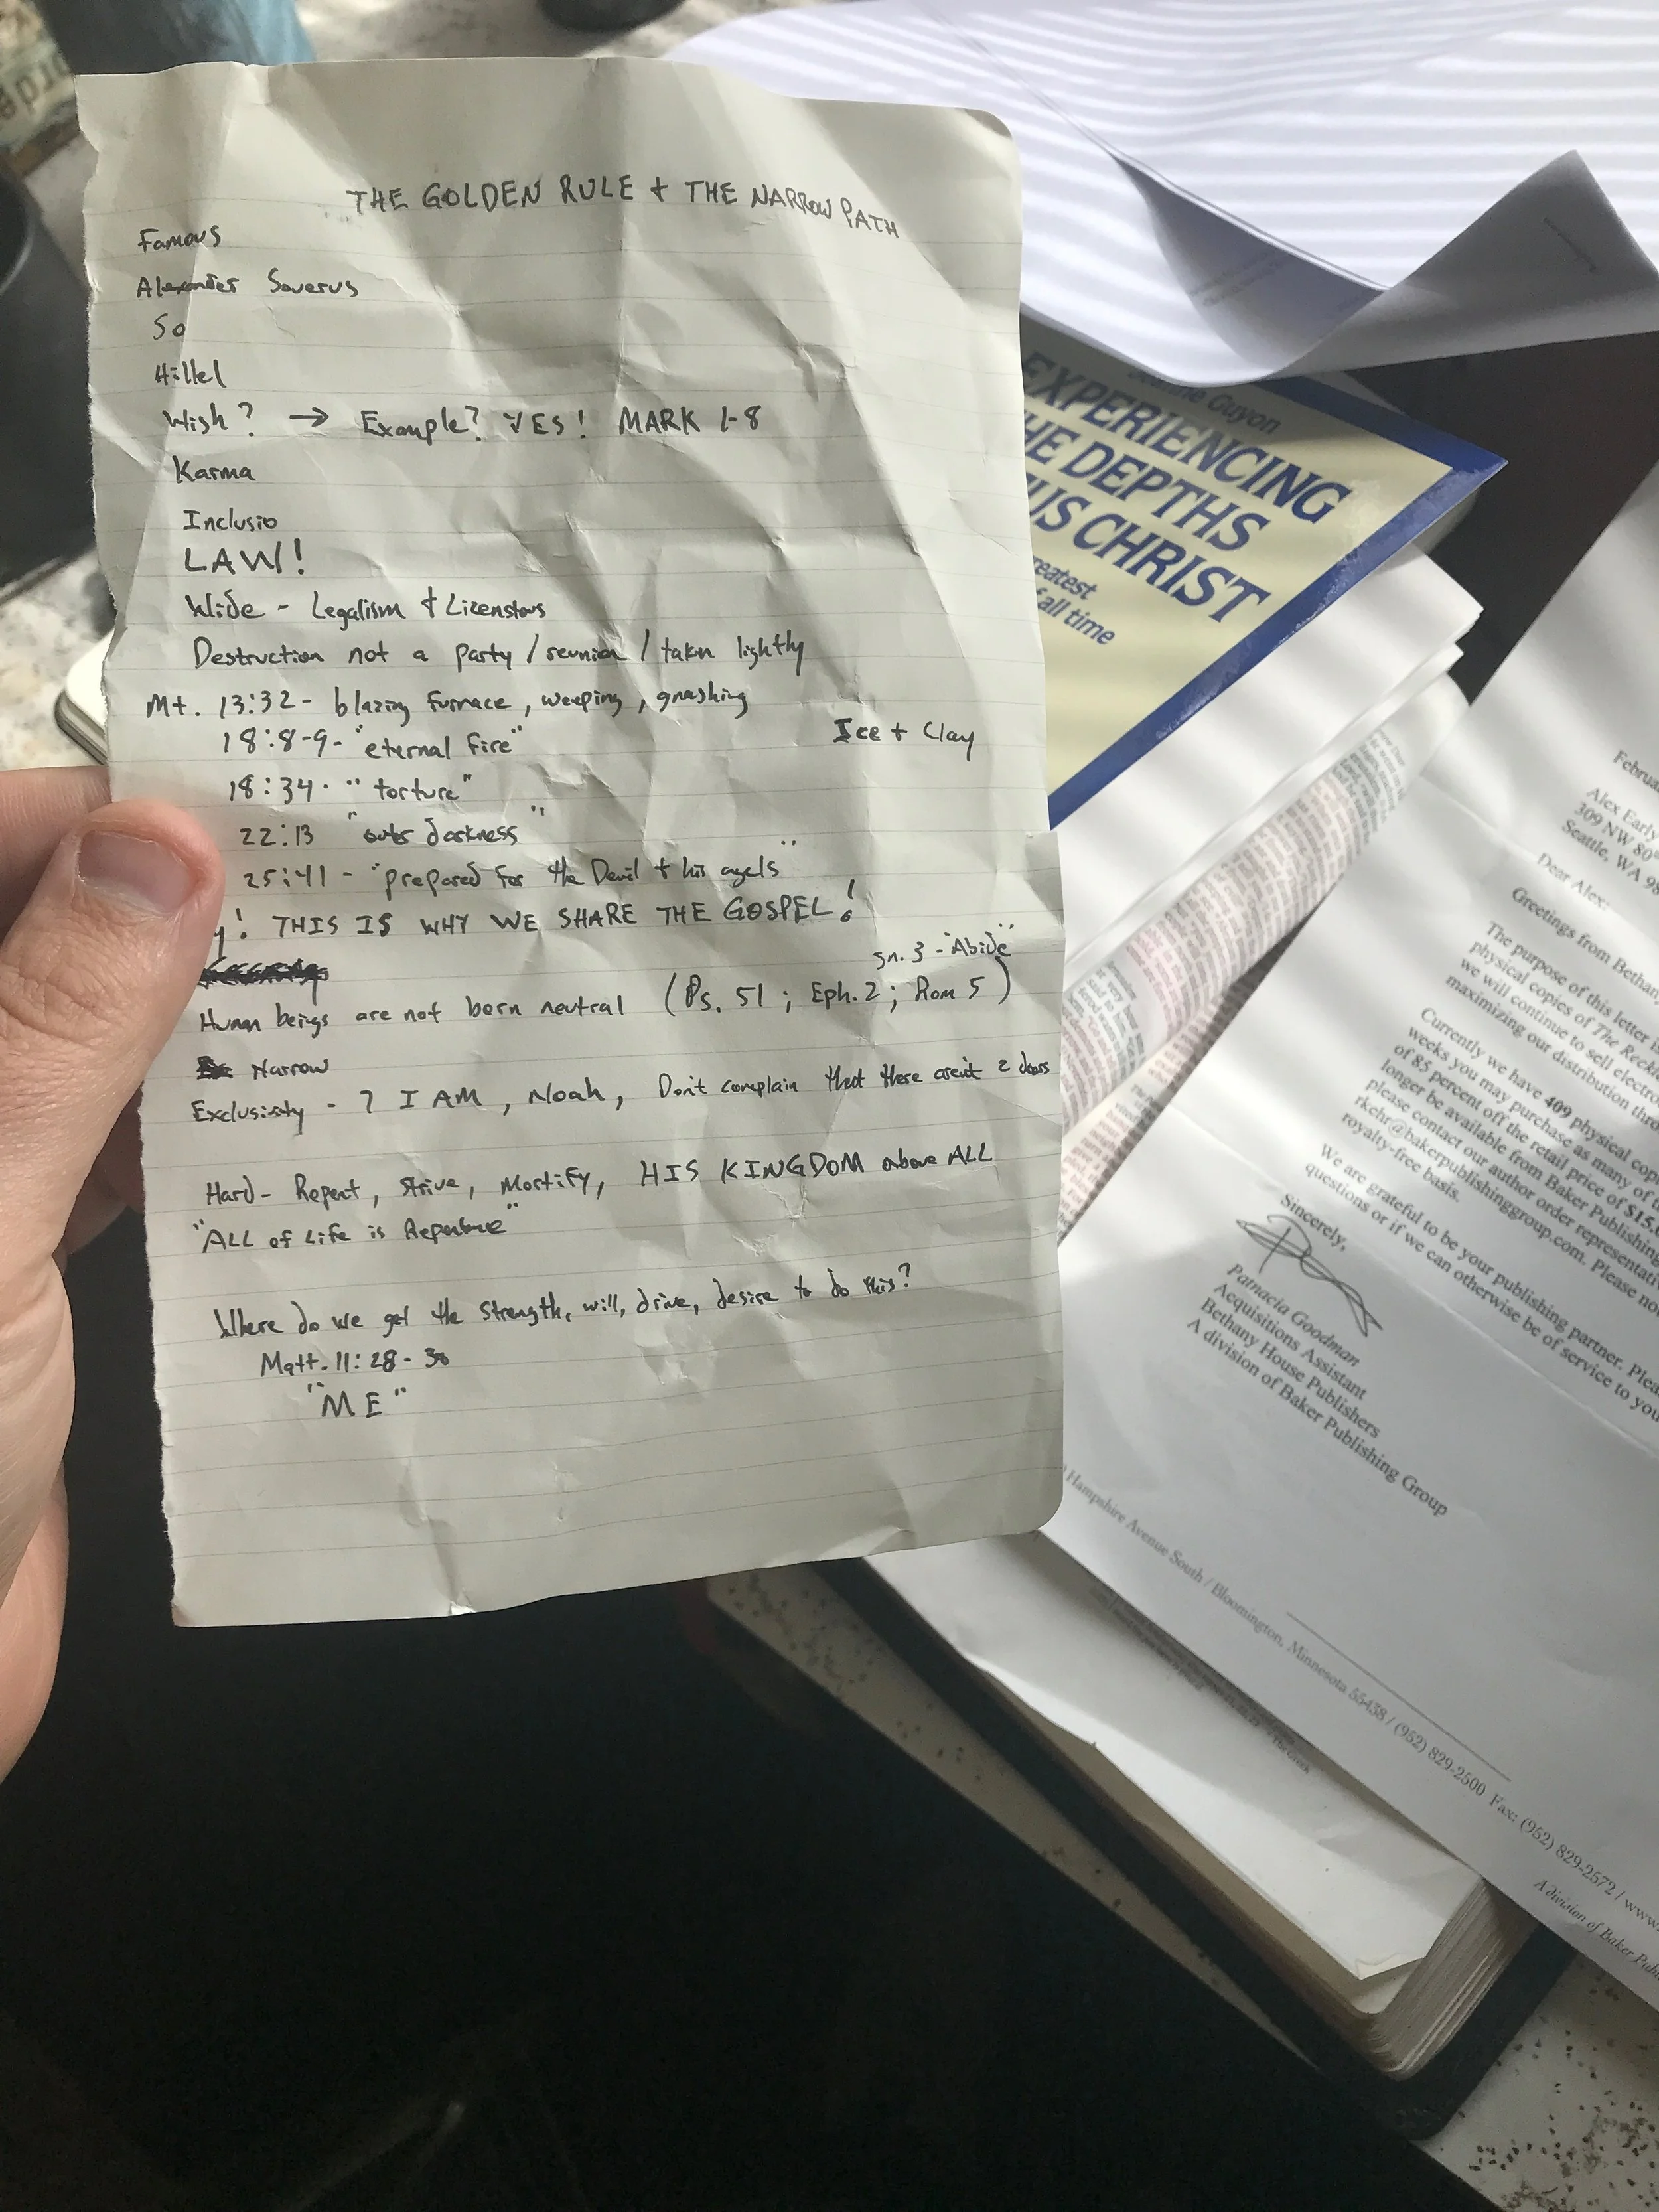 THE GOLDEN RULE + THE NARROW PATH
Famous
Alexander Severus
So
Hillel
Wish? → Example? YES! MARK 1-8
Karma
Inclusio
LAW!
Wide - Legalism + Licenstous
Destruction not a party / reunion / taken lightly
Mt. 13:32 - blazing furnace, weeping, gnashing
18:8-9 - "eternal fire"
Ice + Clay
18:34 - "torture"
22:13 "outer darkness"
25:41 - "prepared for the Devil + his angels"
! THIS IS WHY WE SHARE THE GOSPEL!
Jn. 3 - "Abide"
Human beings are not born neutral (Ps. 51; Eph. 2; Rom 5)
Narrow
Exclusivity - 7 I AM, Noah, Don't complain that there aren't 2 doors
Hard - Repent, Strive, Mortify, HIS KINGDOM above ALL
"ALL of Life is Repentance"
Where do we get the strength, will, drive, desire to do this?
Matt. 11:28-30
"ME"
Guyon
EXPERIENCING
HE DEPTHS
US CHRIST
reatest
f all time
Februa
Alex Early
309 NW 80th
Seattle, WA 98
Dear Alex:
Greetings from Bethany
The purpose of this letter is
physical copies of The Reckle
we will continue to sell electro
maximizing our distribution thro
Currently we have 409 physical copi
weeks you may purchase as many of t
of 85 percent off the retail price of $15.
longer be available from Baker Publishing
please contact our author order representati
rkehr@bakerpublishinggroup.com. Please no
royalty-free basis.
We are grateful to be your publishing partner. Plea
questions or if we can otherwise be of service to you
Sincerely,
Patnacia Goodman
Acquisitions Assistant
Bethany House Publishers
A division of Baker Publishing Group
Hampshire Avenue South / Bloomington, Minnesota 55438 / (952) 829-2500 Fax: (952) 829-2572 / www.
A division of Baker Publ